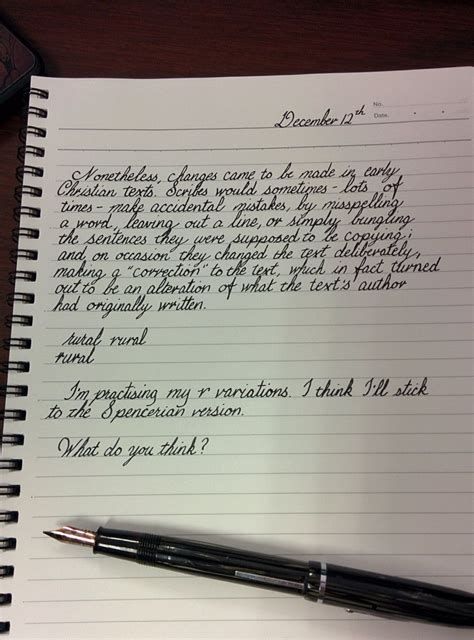 No.
December 12th Date.
Nonetheless, changes came to be made in early
Christian texts. Scribes would sometimes - lots of
times - make accidental mistakes, by misspelling
a word, leaving out a line, or simply bungling
the sentences they were supposed to be copying;
and, on occasion they changed the text deliberately,
making a "correction" to the text, which in fact turned
out to be an alteration of what the text's author
had originally written.
rural rural
rural
I'm practising my r variations. I think I'll stick
to the Spencerian version.
What do you think?